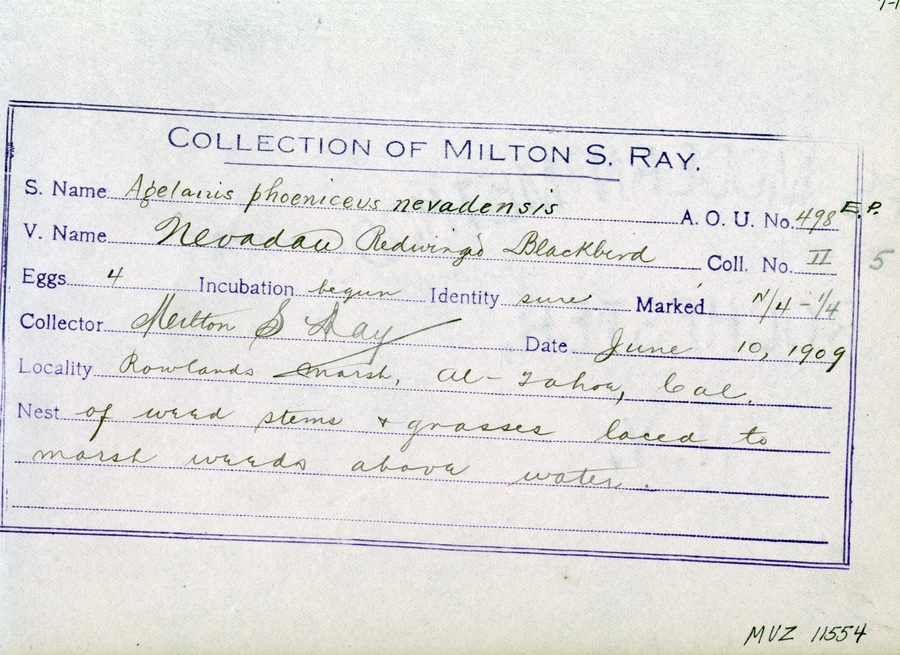 COLLECTION OF MILTON S. RAY.
S. Name Agelaius phoeniceus nevadensis A. O. U. No. 498 E.P.
V. Name Nevadan Redwinged Blackbird Coll. No. II 5
Eggs 4 Incubation begun Identity sure Marked N/4 - 1/4
Collector Milton S Ray Date June 10, 1909
Locality Rowlands Marsh, Al-Tahoe, Cal.
Nest of weed stems + grasses laced to
marsh weeds above water.
MVZ 11554